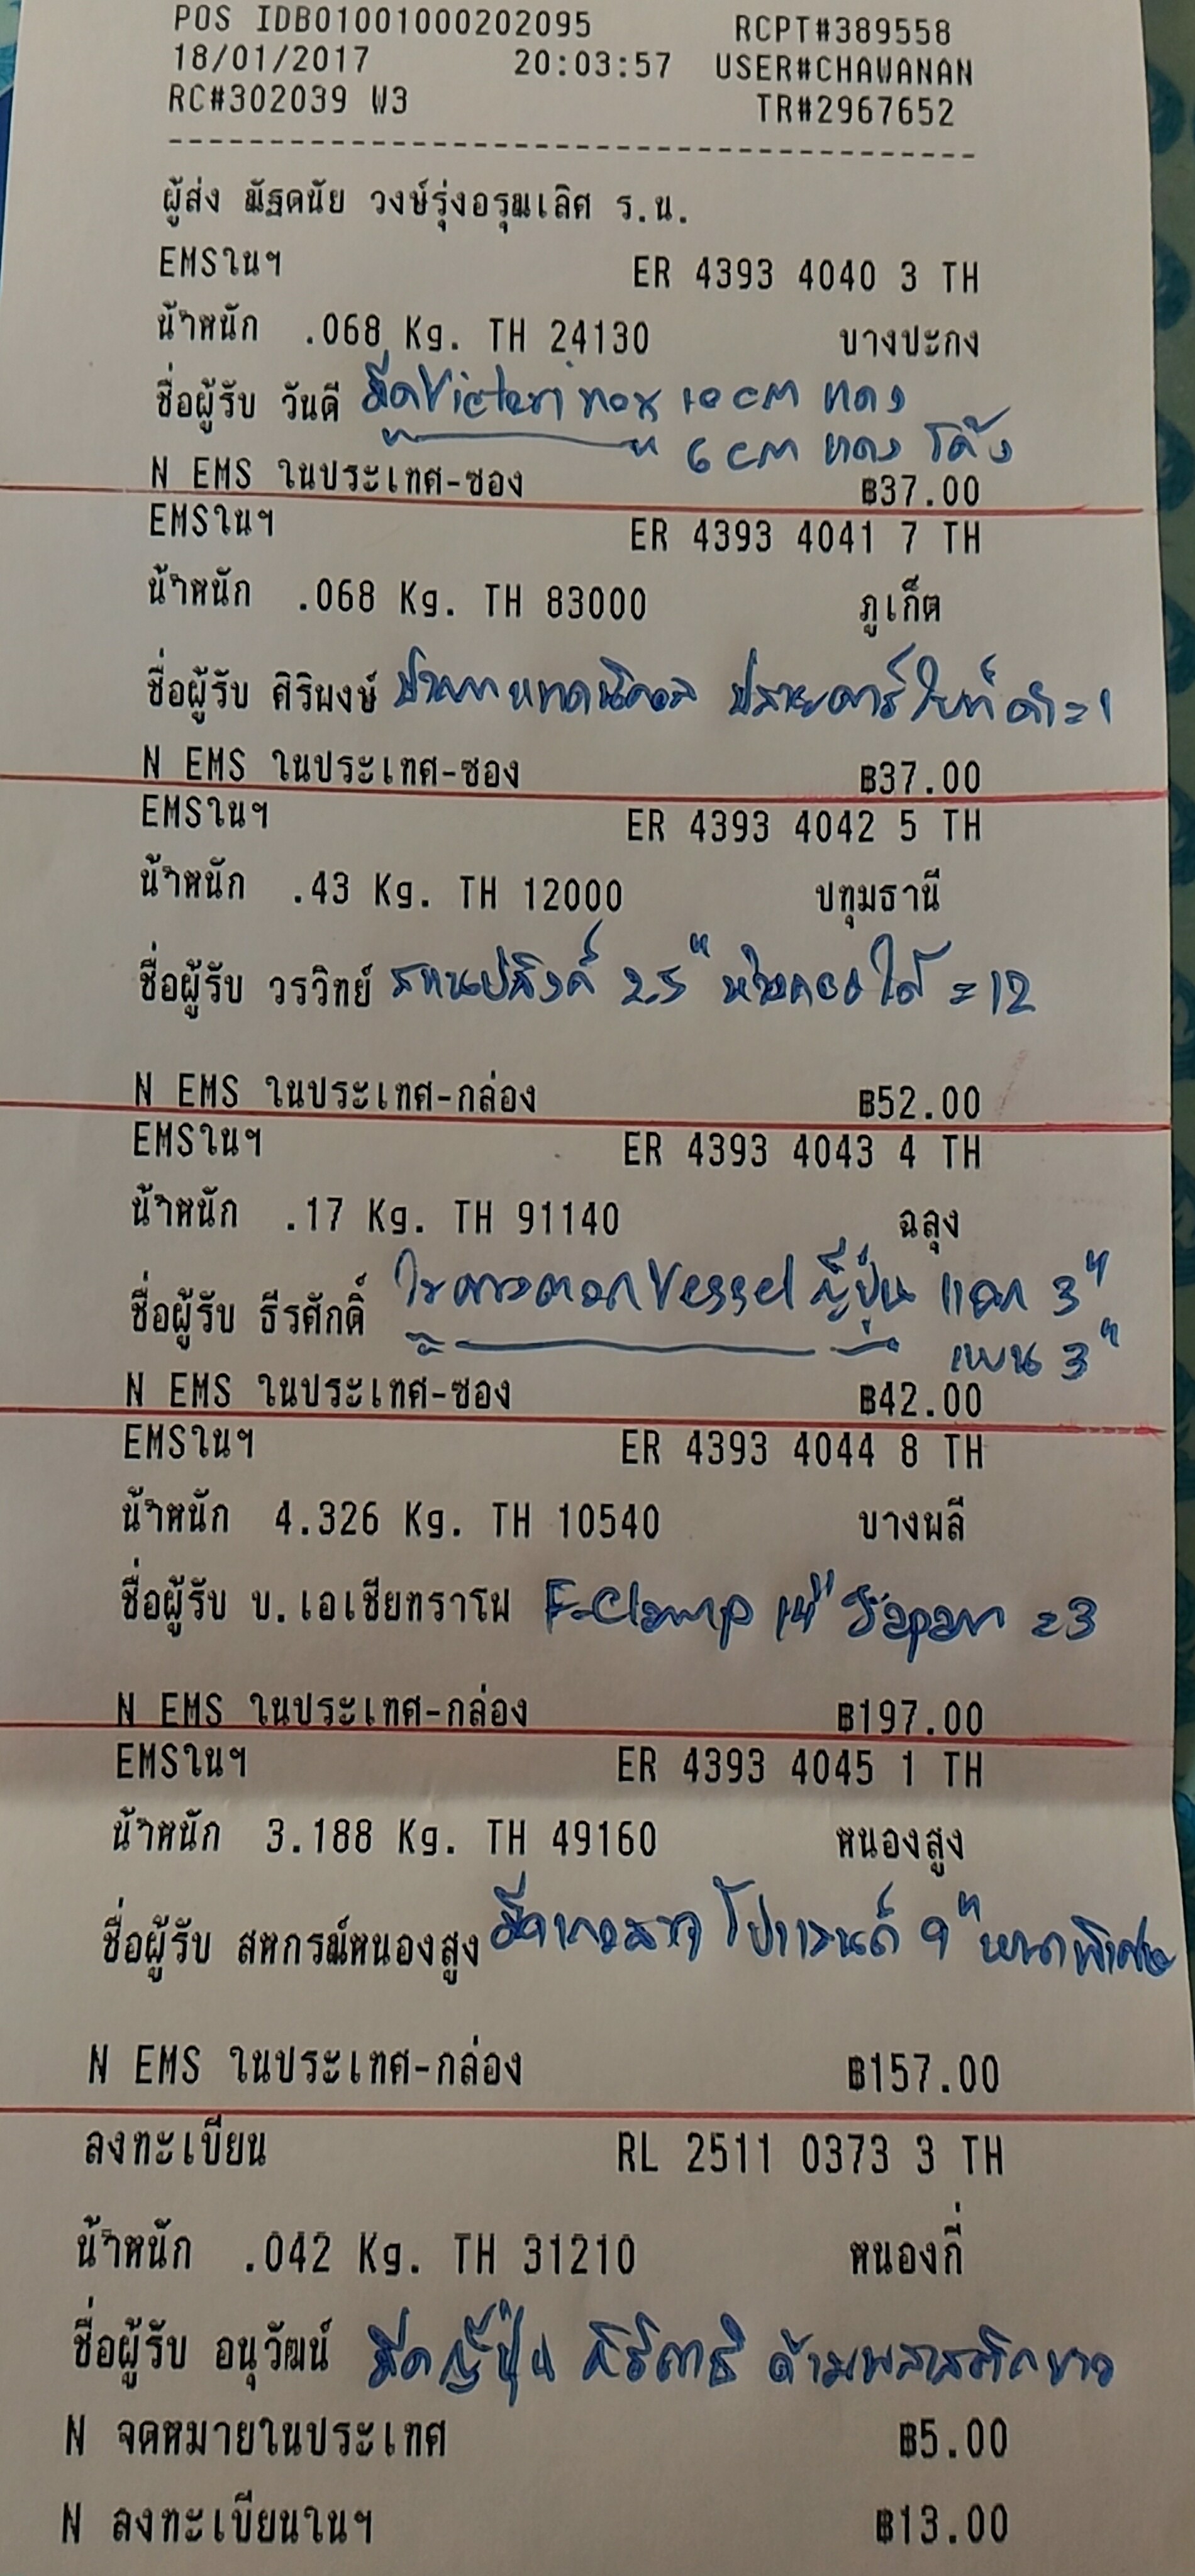 POS IDB01001000202095 RCPT#389558
18/01/2017 20:03:57 USER#CHAWANAN
RC#302039 W3 TR#2967652
ผู้ส่ง ณัฐดนัย วงษ์รุ่งอรุณเลิศ ร.น.
EMSในฯ ER 4393 4040 3 TH
น้ำหนัก .068 Kg. TH 24130 บางปะกง
ชื่อผู้รับ วันดี มีดVictorinox 10 cm แดง
6 cm แดง โค้ง
N EMS ในประเทศ-ซอง ฿37.00
EMSในฯ ER 4393 4041 7 TH
น้ำหนัก .068 Kg. TH 83000 ภูเก็ต
ชื่อผู้รับ ศิริพงษ์ ปลายคาร์ไบท์ ดำ=1
N EMS ในประเทศ-ซอง ฿37.00
EMSในฯ ER 4393 4042 5 TH
น้ำหนัก .43 Kg. TH 12000 ปทุมธานี
ชื่อผู้รับ วรวิทย์ 2.5" =12
N EMS ในประเทศ-กล่อง ฿52.00
EMSในฯ ER 4393 4043 4 TH
น้ำหนัก .17 Kg. TH 91140 ฉลุง
ชื่อผู้รับ ธีรศักดิ์ ไขควงตอกVessel ญี่ปุ่น แฉก 3"
แบน 3"
N EMS ในประเทศ-ซอง ฿42.00
EMSในฯ ER 4393 4044 8 TH
น้ำหนัก 4.326 Kg. TH 10540 บางพลี
ชื่อผู้รับ บ.เอเชียทราโฟ F-Clamp 14" Japan =3
N EMS ในประเทศ-กล่อง ฿197.00
EMSในฯ ER 4393 4045 1 TH
น้ำหนัก 3.188 Kg. TH 49160 หนองสูง
ชื่อผู้รับ สหกรณ์หนองสูง 9" หนาพิเศษ
N EMS ในประเทศ-กล่อง ฿157.00
ลงทะเบียน RL 2511 0373 3 TH
น้ำหนัก .042 Kg. TH 31210 หนองกี่
ชื่อผู้รับ อนุวัฒน์ มีดญี่ปุ่น ด้ามพลาสติกขาว
N จดหมายในประเทศ ฿5.00
N ลงทะเบียนในฯ ฿13.00